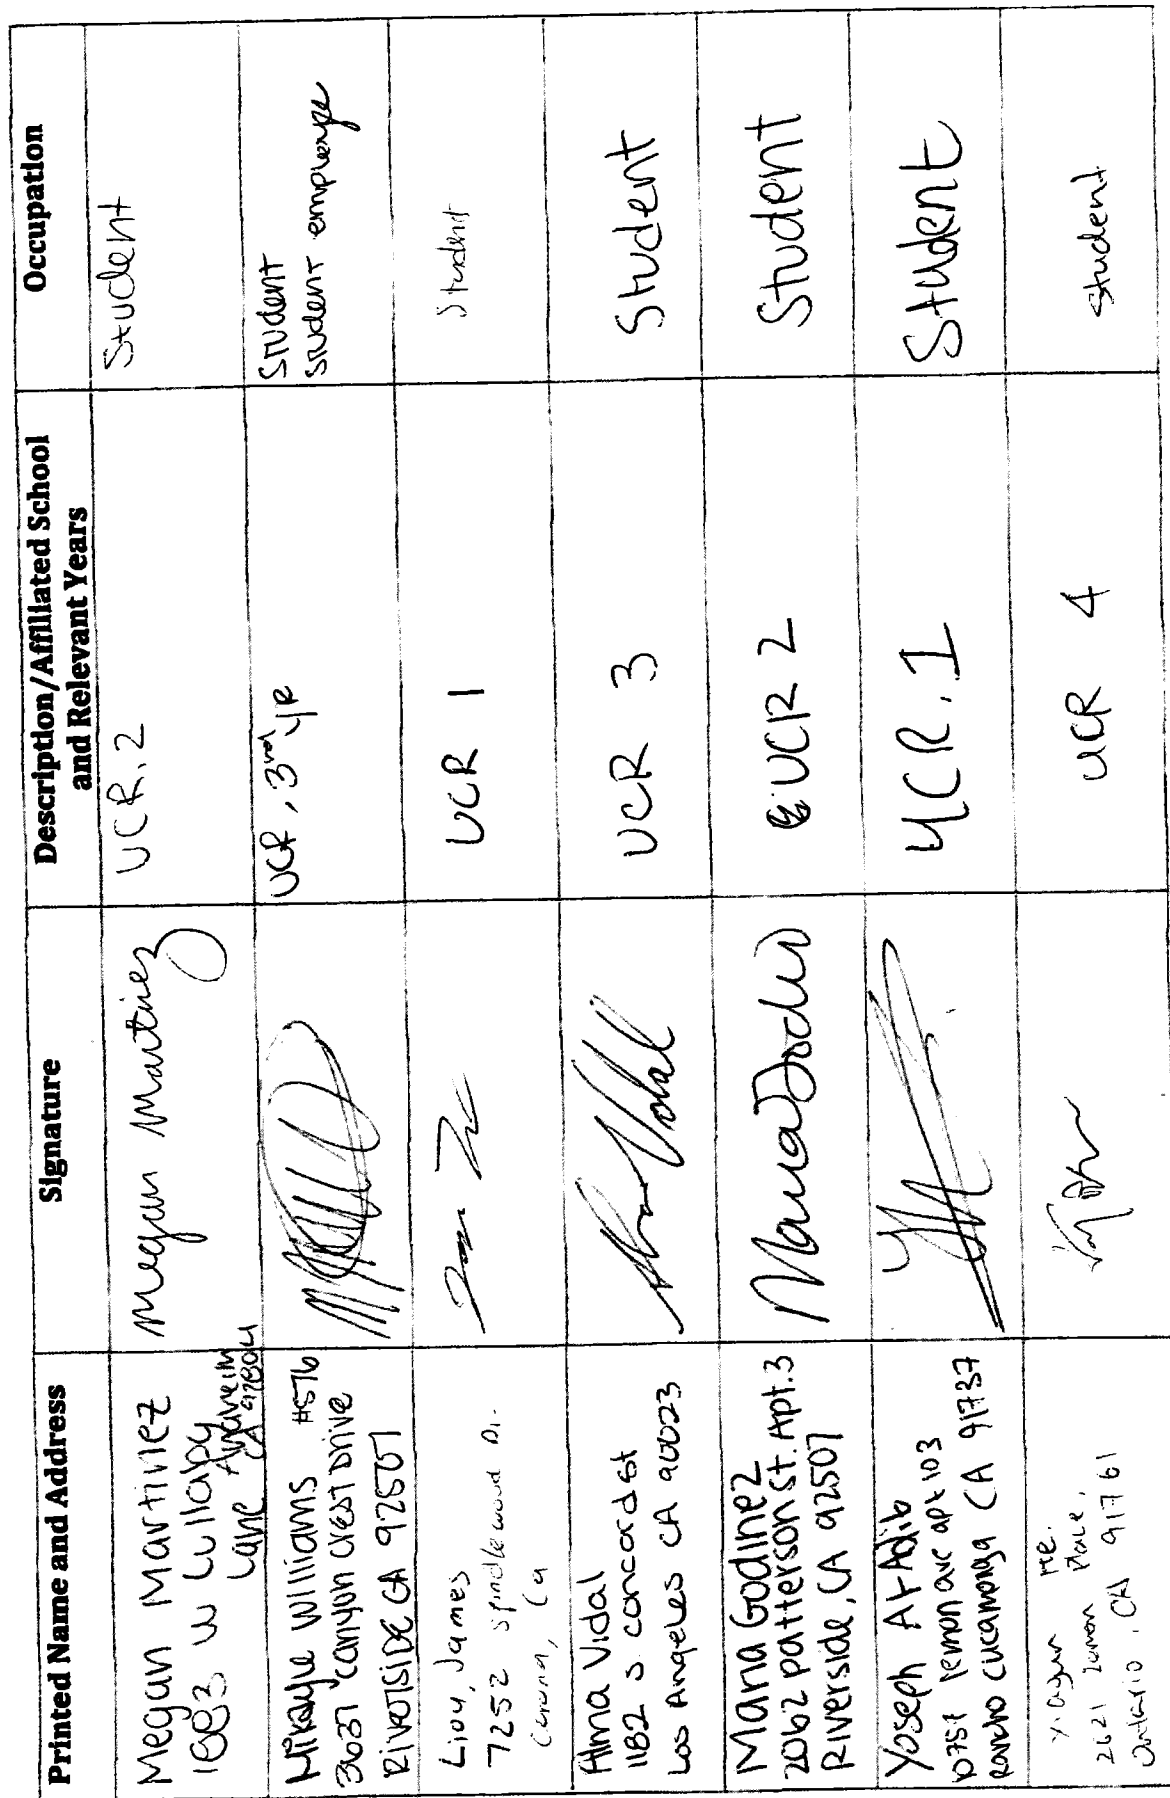 Printed Name and Address
Signature
Description/Affiliated School
and Relevant Years
Occupation
Megan Martinez
1883 W Lullaby
Lane Anaheim
CA 92804
Megan Martinez
UCR. 2
Student
Mikayle Williams #576
3637 Canyon Crest Drive
Riverside CA 92507
UCR, 3rd yr
Student
Student employee
Liou, James
7252 Spindlewood Dr.
Corona, Ca
UCR 1
Student
Alma Vidal
1182 S. concord st
Los Angeles CA 90023
Alma Vidal
UCR 3
Student
Maria Godinez
2062 patterson St. Apt. 3
Riverside, CA 92507
UCR 2
Student
Yoseph At Adib
10751 lemon ave apt 103
Rancho Cucamonga CA 91737
UCR. 1
Student
He.
2621 Place,
Ontario, CA 91761
UCR 4
student